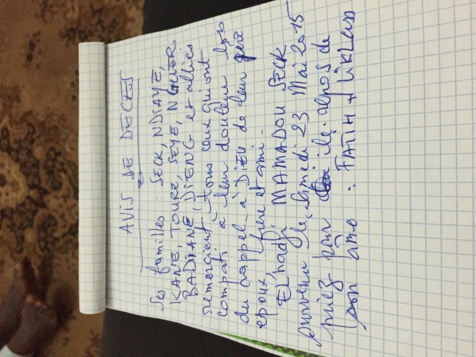 AVIS DE DECES
Les familles : SECK, NDIAYE,
KANE, TOURE, SEYE, NGUER
BADIANE, DIENG et alliés
remercient tous ceux qui ont
compati à leur douleur lors
du rappel à DIEU de leur père
époux, frère et ami.
El hadji MAMADOU SECK
survenu le Samedi 23 Mai 2015
priez pour le repos de
son âme : FATIHA + LIKLASS